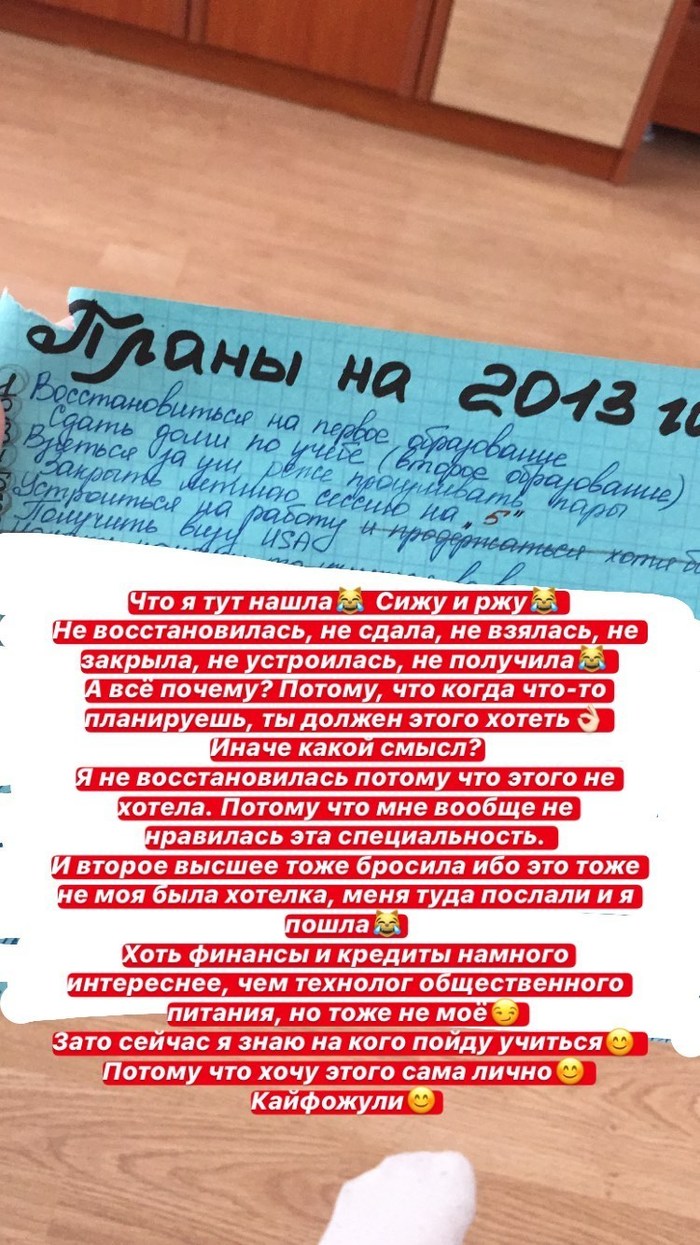 Планы на 2013 го
Восстановиться на первое образование
Сдать долги по учёбе (второе образование)
Взяться за ум реже прогуливать пары
Закрыть летнюю сессию на "5"
Устроиться на работу и продержаться хотя б
Получить визу USA
Что я тут нашла😹 Сижу и ржу😹
Не восстановилась, не сдала, не взялась, не
закрыла, не устроилась, не получила😹
А всё почему? Потому, что когда что-то
планируешь, ты должен этого хотеть👌🏻
Иначе какой смысл?
Я не восстановилась потому что этого не
хотела. Потому что мне вообще не
нравилась эта специальность.
И второе высшее тоже бросила ибо это тоже
не моя была хотелка, меня туда послали и я
пошла😹
Хоть финансы и кредиты намного
интереснее, чем технолог общественного
питания, но тоже не моё😏
Зато сейчас я знаю на кого пойду учиться😊
Потому что хочу этого сама лично😊
Кайфожули😊